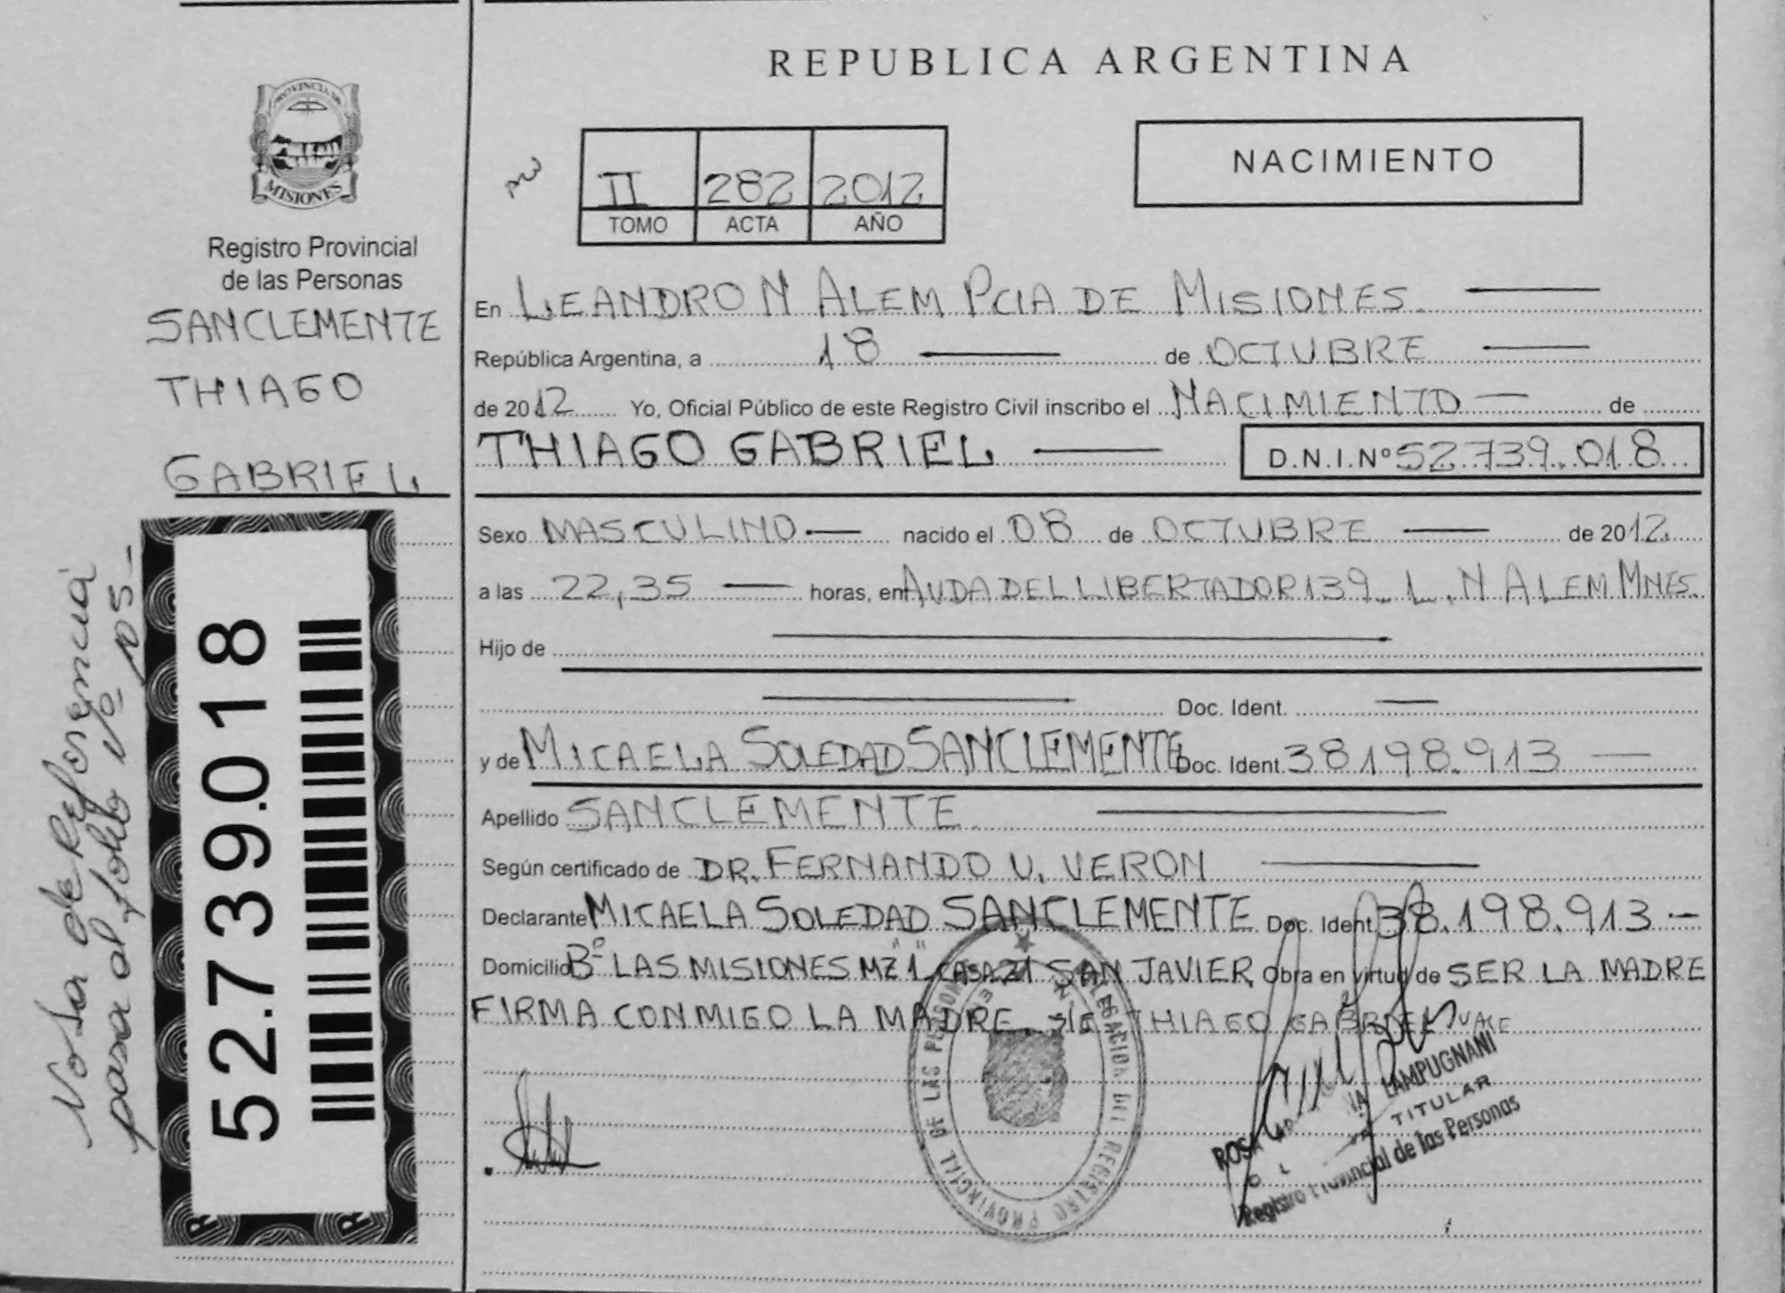 REPUBLICA ARGENTINA
PROVINCIA DE
MISIONES
Registro Provincial
de las Personas
SANCLEMENTE
THIAGO
GABRIEL
Nota de Referencia
pasa al folio Nº 105-
52.739.018
II 282 2012
TOMO ACTA AÑO
NACIMIENTO
En LEANDRO N ALEM PCIA DE MISIONES
República Argentina, a 18 de OCTUBRE
de 2012 Yo, Oficial Público de este Registro Civil inscribo el NACIMIENTO de
THIAGO GABRIEL D.N.I.Nº 52.739.018
Sexo MASCULINO nacido el 08 de OCTUBRE de 2012
a las 22,35 horas, en AVDA DEL LIBERTADOR 139 L.N ALEM MNES.
Hijo de
Doc. Ident.
y de MICAELA SOLEDAD SANCLEMENTE Doc. Ident. 38198.913
Apellido SANCLEMENTE
Según certificado de DR. FERNANDO V. VERON
Declarante MICAELA SOLEDAD SANCLEMENTE Doc. Ident. 38.198.913 -
Domicilio Bº LAS MISIONES MZ "1" CASA 21 SAN JAVIER Obra en virtud de SER LA MADRE
FIRMA CONMIGO LA MADRE S/E THIAGO GABRIEL VALE
DELEGACION DEL REGISTRO PROVINCIAL DE LAS PERSONAS
ROSA LAMPUGNANI
TITULAR
Registro Provincial de las Personas